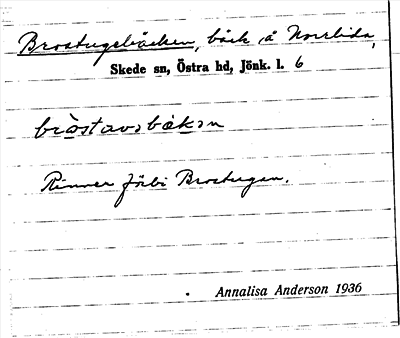 Brostugebäcken, bäck å Norrlida,
Skede sn, Östra hd, Jönk. l. 6
Rinner förbi Brostugan.
Annalisa Anderson 1936